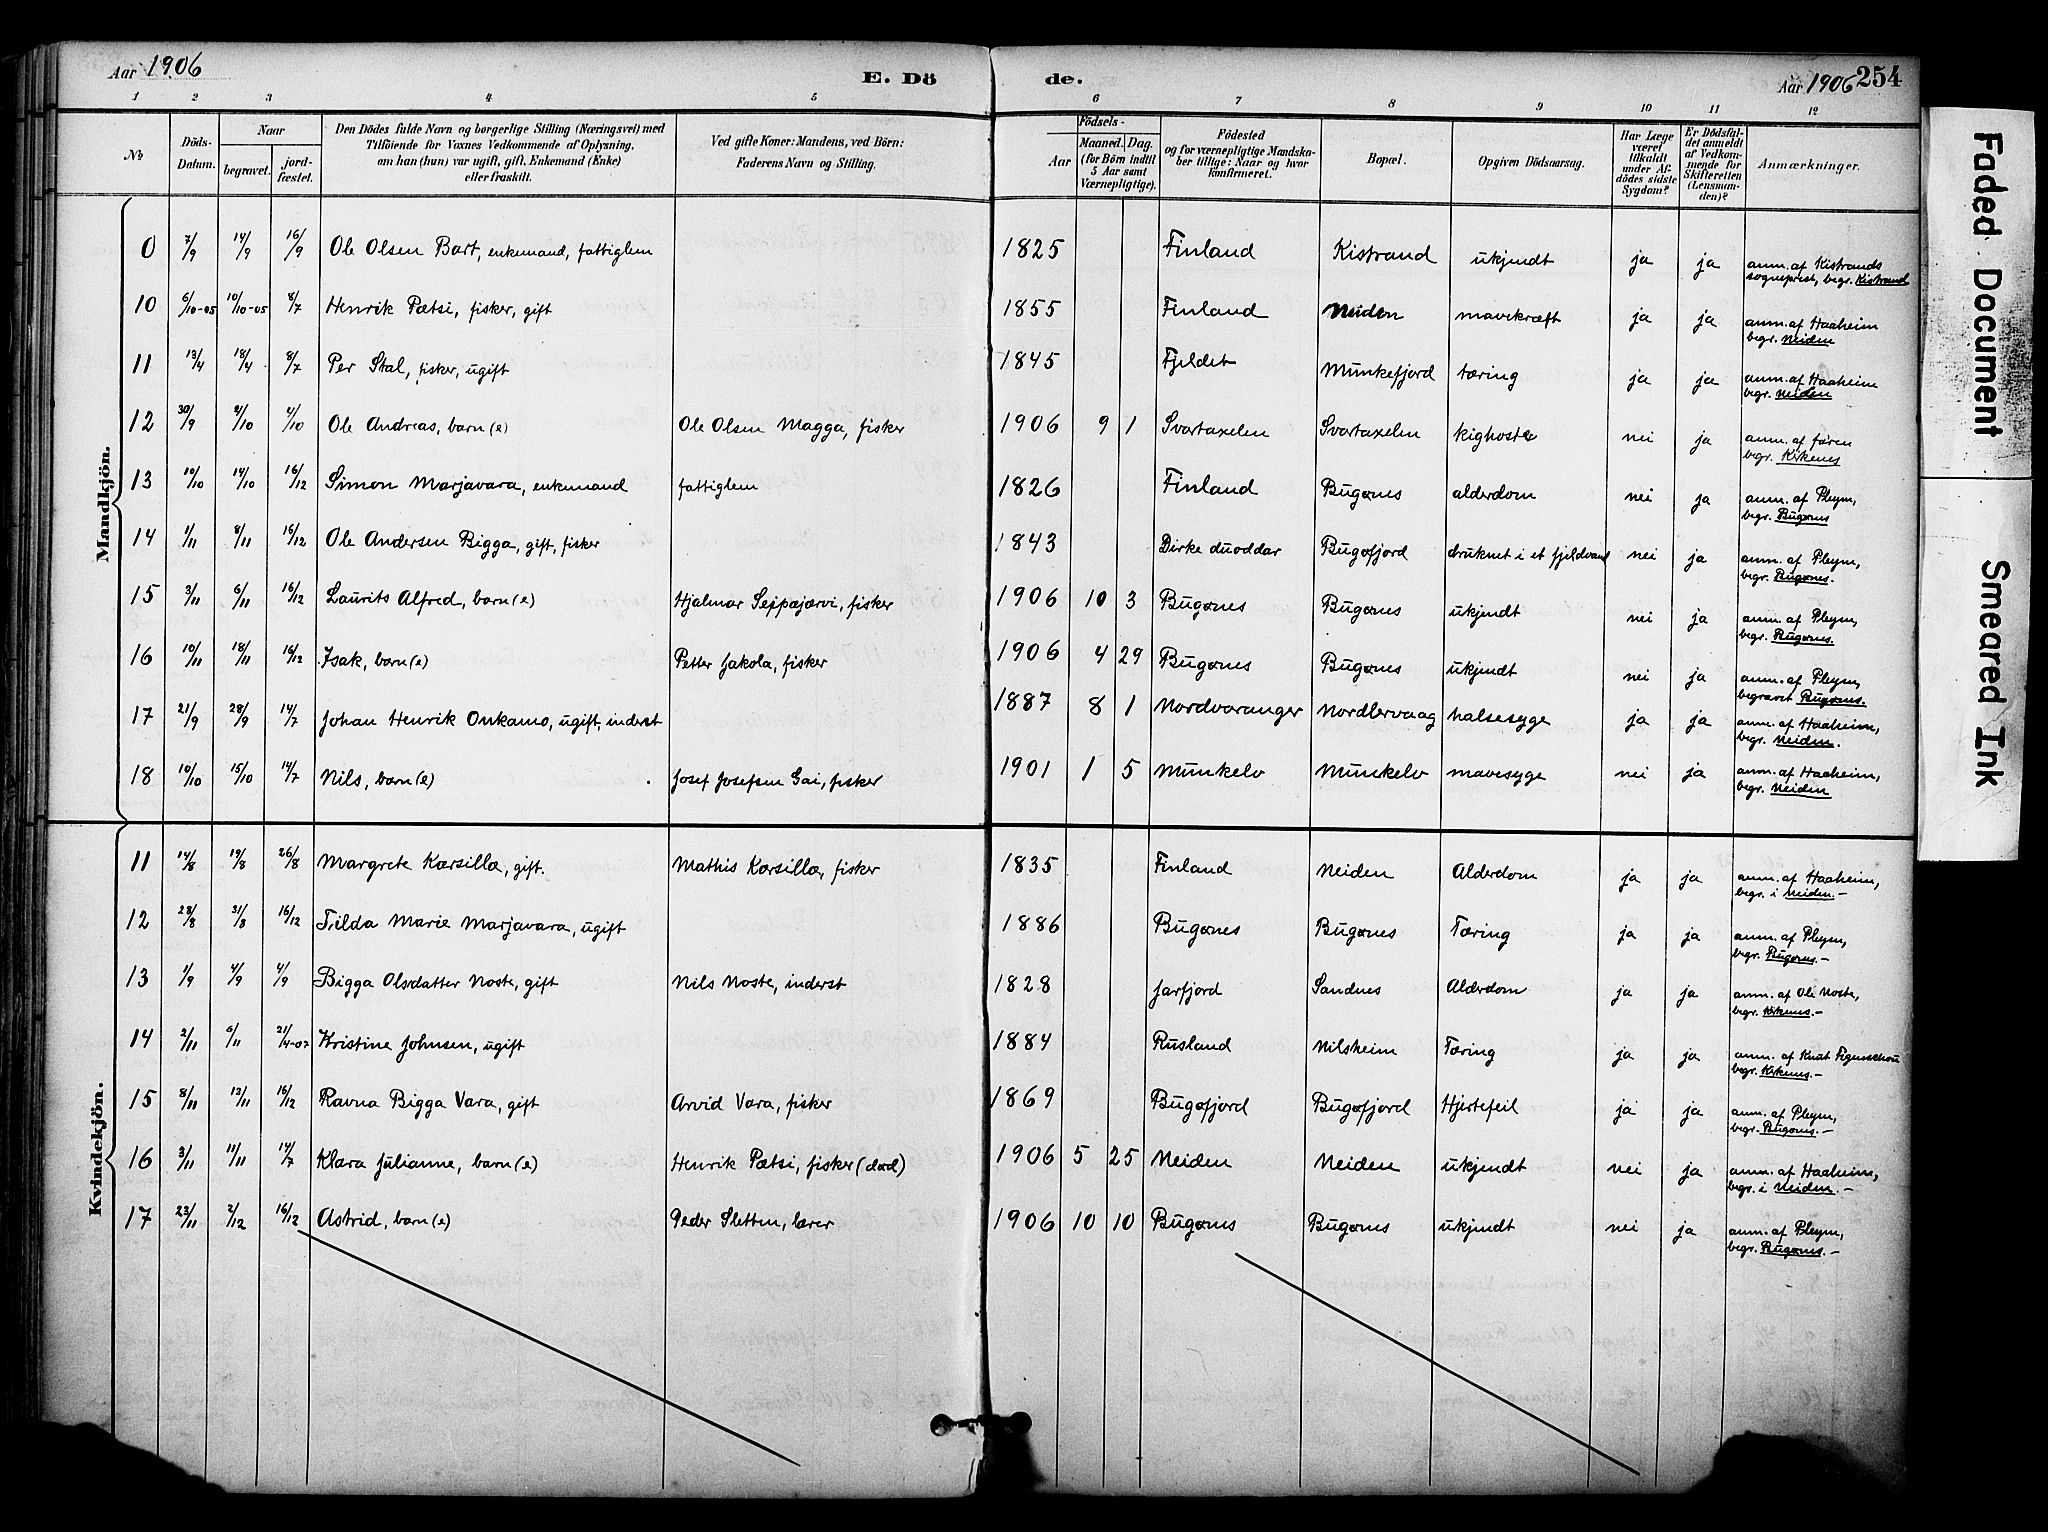 Aar 1906
E. Dö
de.
Aar 1906
254
1 2 3 4 5 6 7 8 9 10 11 12
No.
Döds-Datum.
Naar
begravet.
jord-fæstet.
Den Dödes fulde Navn og borgerlige Stilling (Næringsvei) med
Tilföiende for Voxnes Vedkommende af Oplysning,
om han (hun) var ugift, gift, Enkemand (Enke)
eller fraskilt.
Ved gifte Koner: Mandens, ved Børn:
Faderens Navn og Stilling.
Födsels-
Aar
Maaned. Dag.
(for Börn indtil
5 Aar samt
Værnepligtige).
Födested
og for værnepligtige Mandska-
ber tillige: Naar og hvor
konfirmeret.
Bopæl.
Opgiven Dödsaarsag.
Har Læge
været
tilkaldt
under Af-
dödes sidste
Sygdom?
Er Dödsfal-
det anmeldt
af Vedkom-
mende for
Skifteretten
(Lensman-
den)?
Anmærkninger.
Mandkjön.
0 7/9 14/9 16/9 Ole Olsen Bart, enkemand, fattiglem 1825 Finland Kistrand ukjendt ja ja anm. af Kistrands
sogneprest, begr. Kistrand
10 6/10-05 10/10-05 8/7 Henrik Pætsi, fisker, gift 1855 Finland Neiden mavekræft ja ja anm. af Haaheim
begr. Neiden
11 13/4 18/4 8/7 Per Stal, fisker, ugift 1845 Fjeldet Munkefjord tæring ja ja anm. af Haaheim
begr. Neiden
12 30/9 2/10 2/10 Ole Andreas, barn (e) Ole Olsen Magga, fisker 1906 9 1 Svartaxelen Svartaxelen kighoste nei ja anm. af faren
begr. Kirkenes
13 10/10 14/10 16/12 Simon Marjavara, enkemand fattiglem 1826 Finland Bugønes alderdom nei ja anm. af Pleym,
begr. Bugønes
14 1/11 8/11 16/12 Ole Andersen Bigga, gift, fisker 1843 Dirke duoddar Bugøfjord druknet i et fjeldvand nei ja anm. af Pleym,
begr. Bugønes.
15 3/11 6/11 16/12 Laurits Alfred, barn (e) Hjalmar Seppæjærvi, fisker 1906 10 3 Bugønes Bugønes ukjendt nei ja anm. af Pleym,
begr. Bugønes.
16 10/11 18/11 16/12 Isak, barn (e) Petter Jakola, fisker 1906 4 29 Bugønes Bugønes ukjendt nei ja anm. af Pleym,
begravet Bugønes.
17 21/9 28/9 14/7 Johan Henrik Onkamo, ugift, inderst 1887 8 1 Nordvaranger Nordlervaag halsesyge ja ja anm. af Haaheim,
begr. Neiden.
18 10/10 15/10 14/7 Nils, barn (e) Josef Josefsen Gai, fisker 1901 1 5 Munkelv Munkelv mavesyge nei ja anm. af Haaheim,
begr. Neiden
Kvindekjön.
11 14/8 19/8 26/8 Margrete Karsilla, gift. Mathis Karsilla, fisker 1835 Finland Neiden Alderdom ja ja anm. af Haaheim,
begr. i Neiden.-
12 28/8 31/8 16/12 Tilda Marie Marjavara, ugift 1886 Bugønes Bugønes Tæring ja ja anm. af Pleym,
begr. Bugønes.-
13 1/9 4/9 4/9 Bigga Olsdatter Noste, gift Nils Noste, inderst 1828 Jarfjord Sandnes Alderdom ja ja anm. af Ole Noste,
begr. Kirkenes.-
14 2/11 6/11 21/4-07 Kristine Johnsen, ugift 1884 Rusland Nilsheim Tæring ja ja anm. af Knut Figenschou
begr. Kirkenes.-
15 8/11 13/11 16/12 Ravna Bigga Vara, gift Arvid Vara, fisker 1869 Bugøfjord Bugøfjord Hjertefeil ja ja anm. af Pleym,
begr. Bugønes.-
16 3/11 11/11 14/7 Klara Julianne, barn (e) Henrik Pætsi, fisker (død) 1906 5 25 Neiden Neiden ukjendt nei ja anm. af Haaheim,
begr. i Neiden.-
17 23/11 2/12 16/12 Astrid, barn (e) Peder Sletten, lærer 1906 10 10 Bugønes Bugønes ukjendt nei ja anm. af Pleym,
begr. Bugønes.-
Faded Document
Smeared Ink